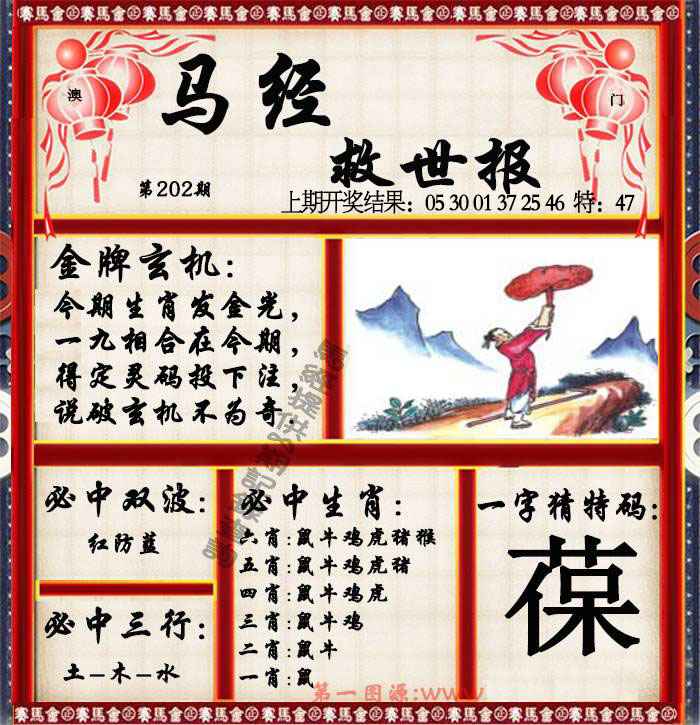 賽馬會 賽馬會 賽馬會 賽馬會 賽馬會 賽馬會 賽馬會 賽馬會 賽馬會 賽馬會
澳
门
马经
救世报
第202期
上期开奖结果：05 30 01 37 25 46 特：47
金牌玄机：
今期生肖发金光，
一九相合在今期，
得定灵码投下注，
说破玄机不为奇.
必中双波：
红防蓝
必中三行：
土-木-水
必中生肖：
六肖：鼠牛鸡虎猪猴
五肖：鼠牛鸡虎猪
四肖：鼠牛鸡虎
三肖：鼠牛鸡
二肖：鼠牛
一肖：鼠
一字猜特码：
葆
第一图源:www
賽馬會 賽馬會 賽馬會 賽馬會 賽馬會 賽馬會 賽馬會 賽馬會 賽馬會 賽馬會